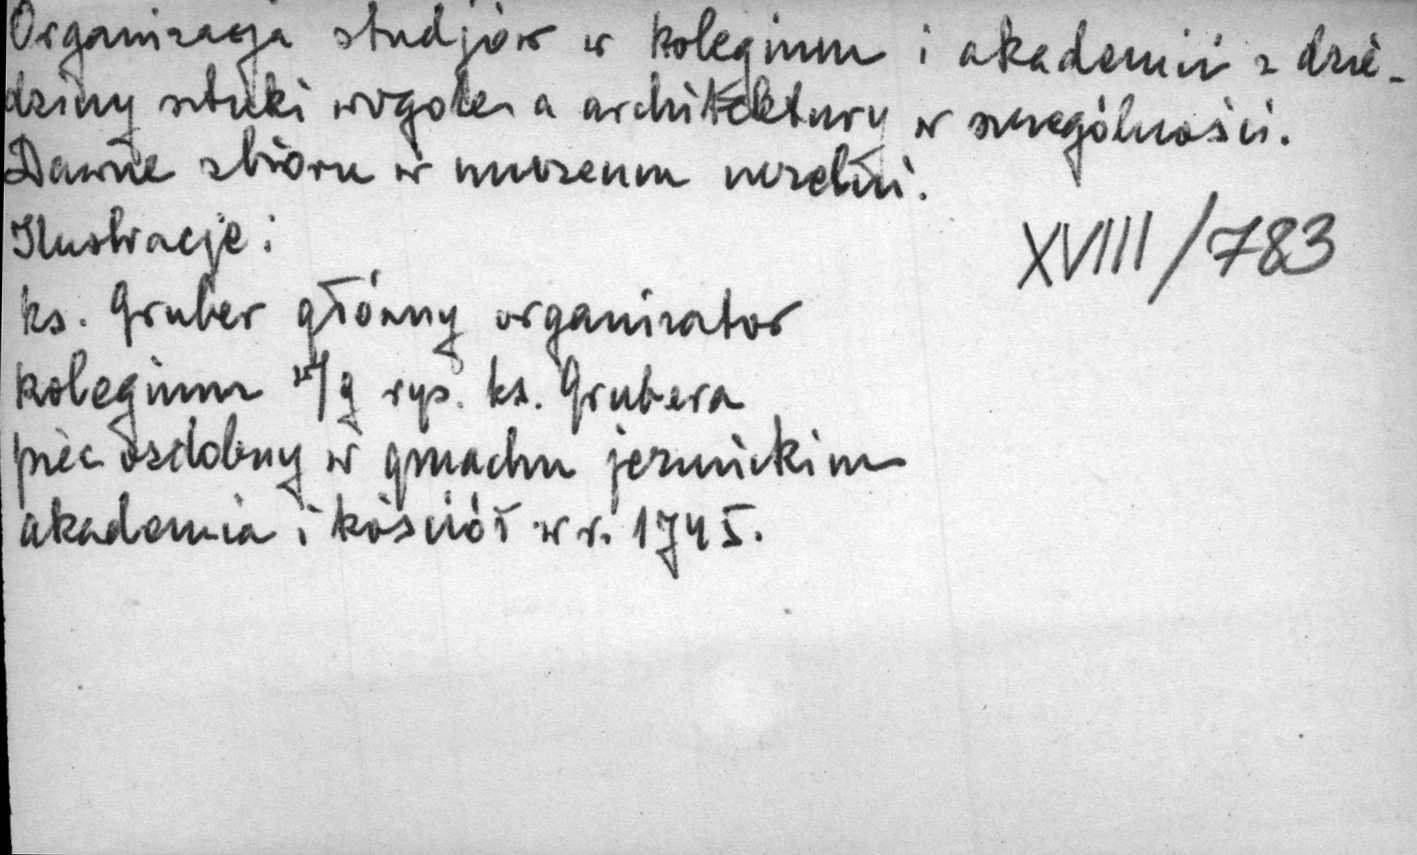 Organizacja studjów w kolegium i akademii z dzie-
dziny sztuki wogóle a architektury w szczególności.
Dawne zbiory w muzeum uczelni.
Ilustracje:
XVIII/783
ks. Gruber główny organizator
kolegium w/g rys. ks. Grubera
piec ozdobny w gmachu jezuickim
akademia i kościół w r. 1745.